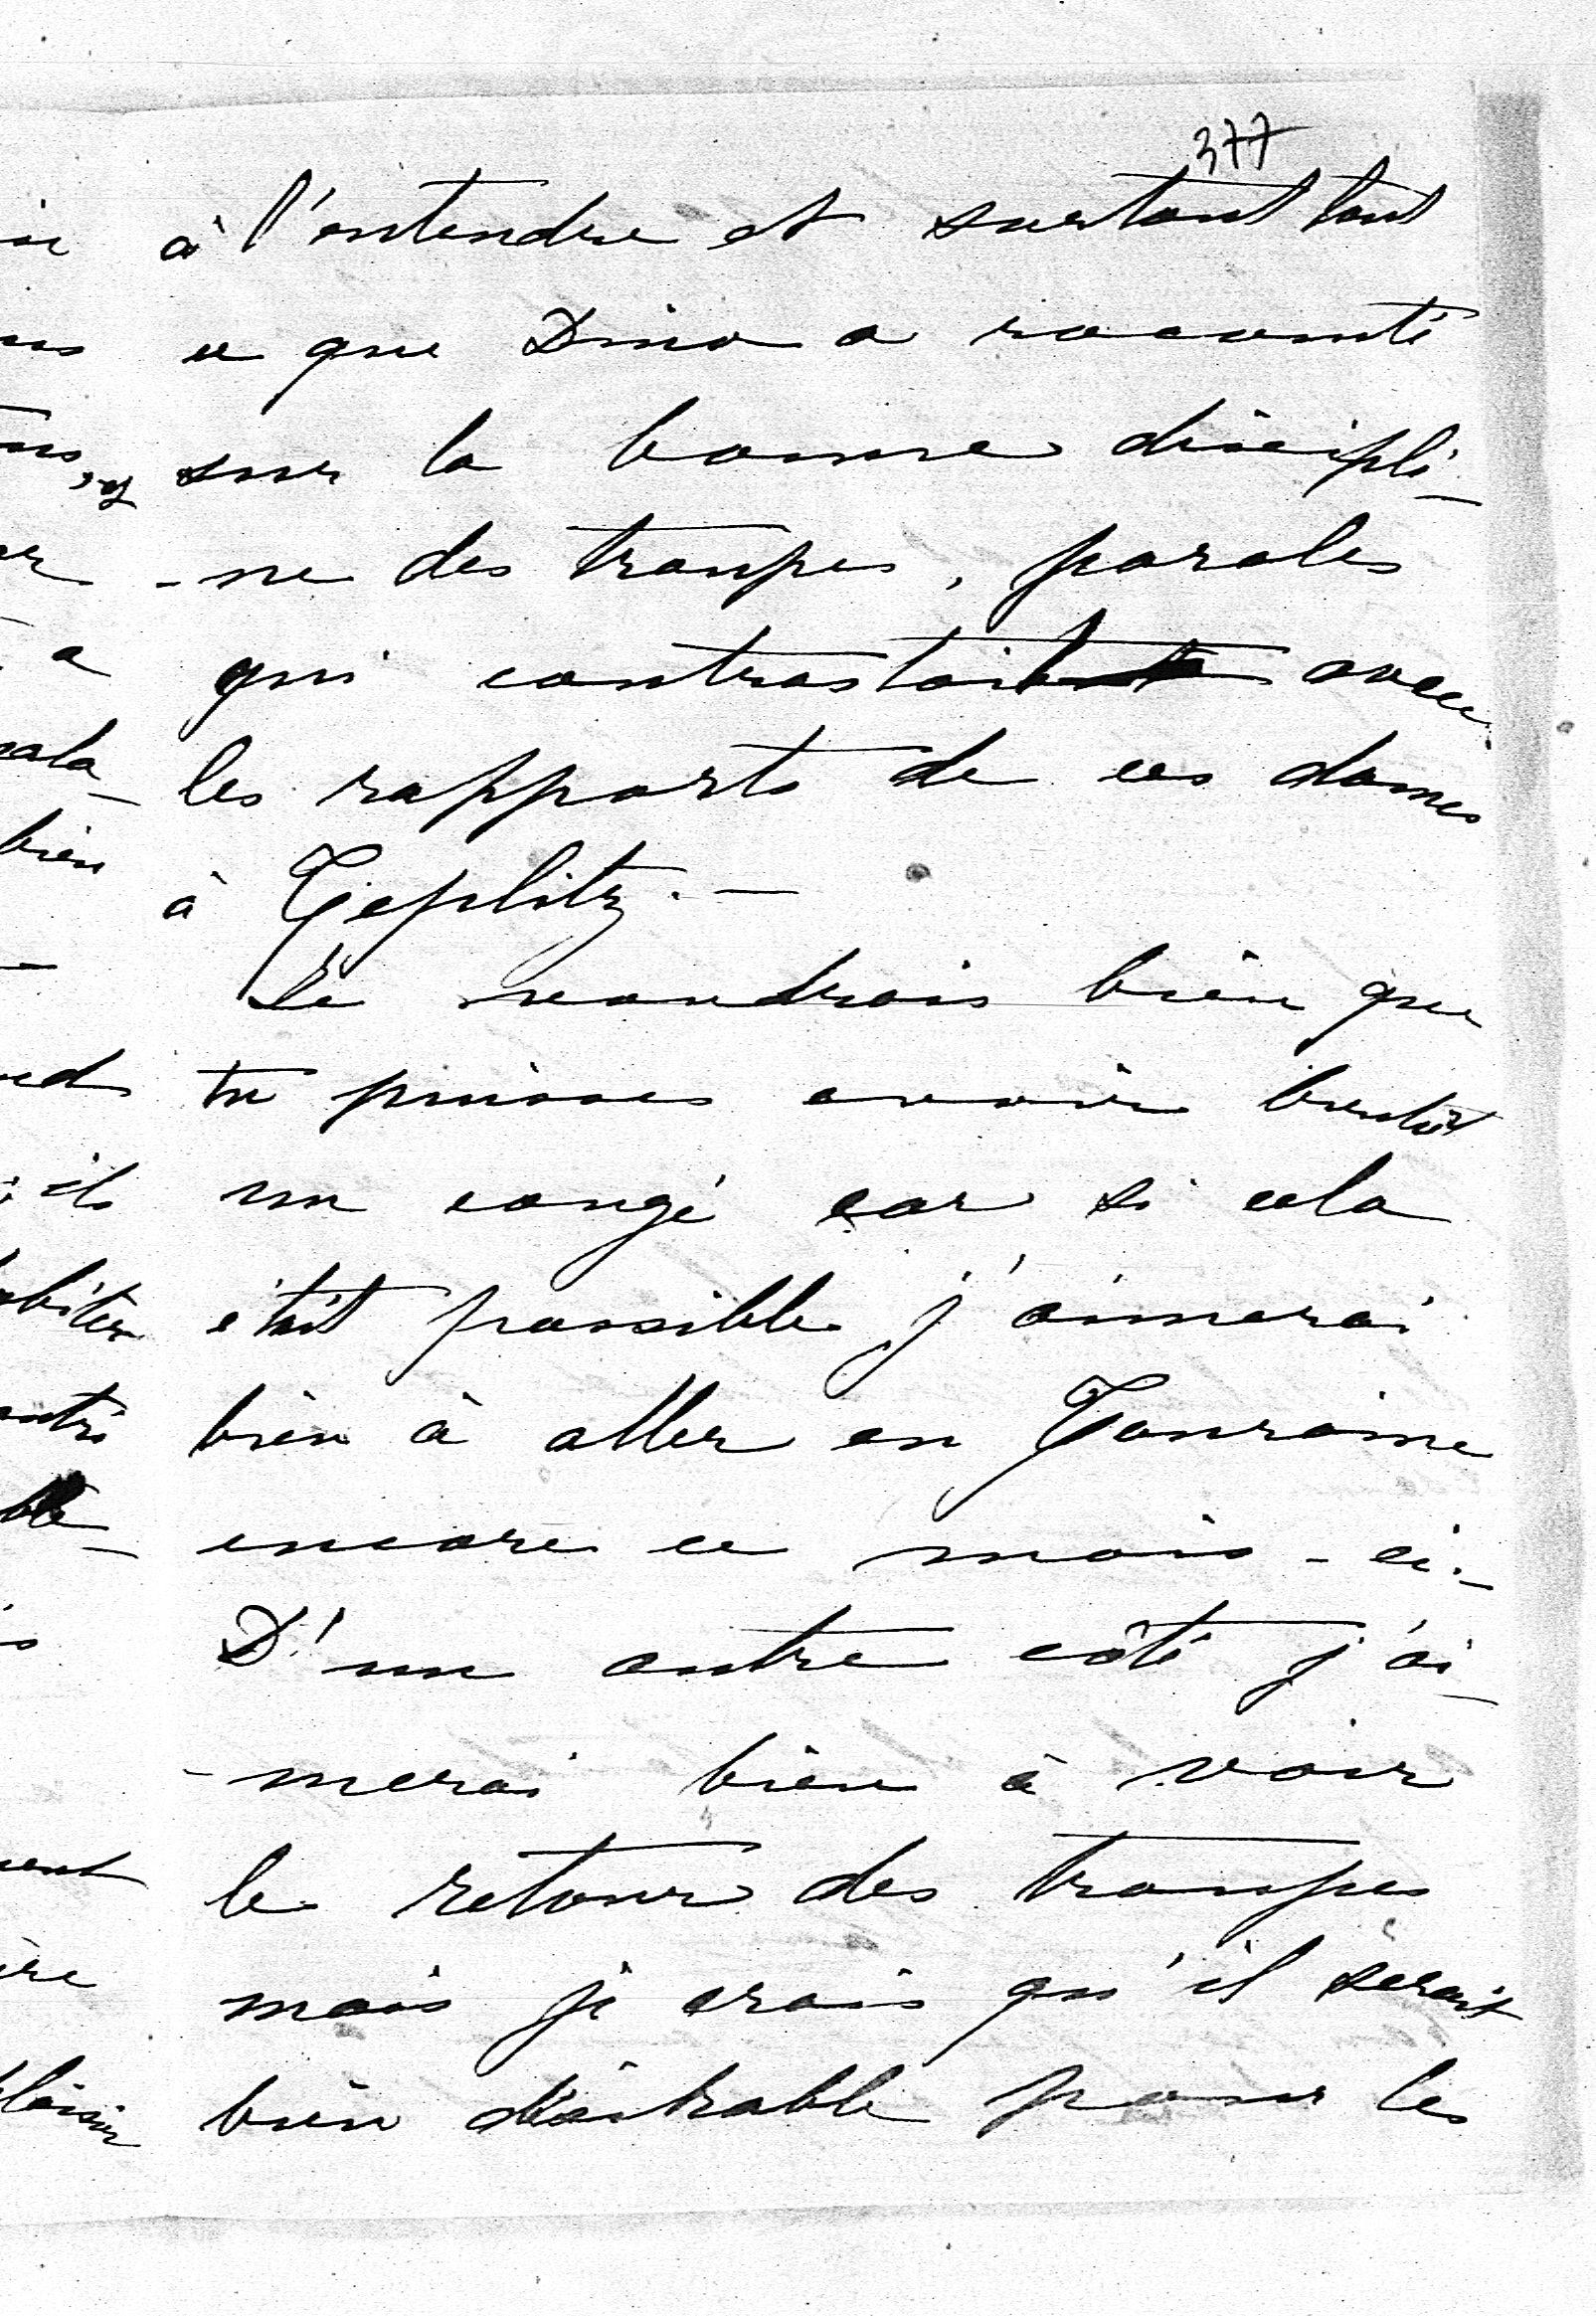 377
à l'entendre et surtout tout
ce que Dino a raconté
sur la bonne discipli-
-ne des troupes, paroles
qui contrastait avec
les rapports de ces dames
à Teplitz. —
Je voudrais bien que
tu puisses avoir bientôt
un congé car si cela
était possible j'aimerai
bien à aller en Touraine
encore ce mois-ci.-
D'un autre côté j'ai-
-merai bien à voir
le retour des troupes
mais je crois qu'il serait
bien désirable pour les